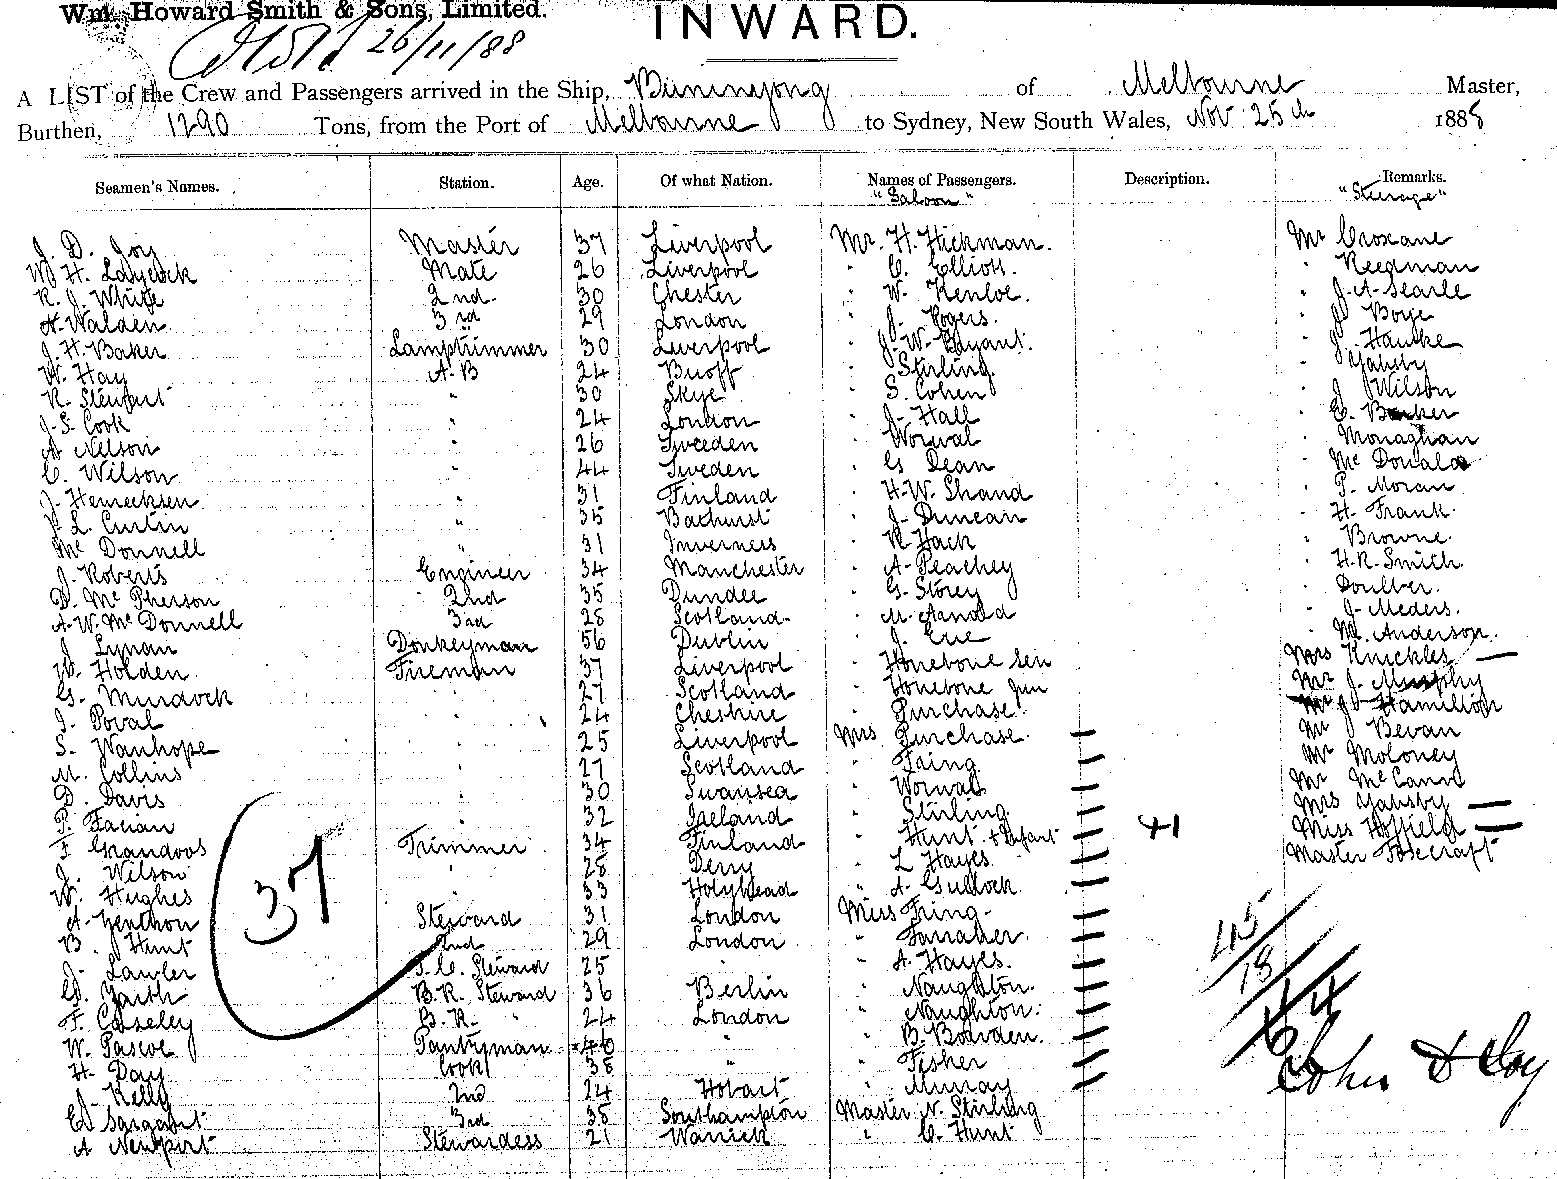 Wm. Howard Smith & Sons, Limited.
INWARD.
26/11/88
A LIST of the Crew and Passengers arrived in the Ship, Buninyong of Melbourne Master,
Burthen, 1290 Tons, from the Port of Melbourne to Sydney, New South Wales, Nov 25th 1888
Seamen's Names. Station. Age. Of what Nation. Names of Passengers. Description. Remarks.
"Saloon" "Steerage"
J. D. Joy Master 37 Liverpool Mr. H. Hickman. Mr Croxane
W. H. Laycock Mate 26 Liverpool " C. Elliott. " Reedman
R. J. White 2nd 30 Chester " W. Kenloe. " J. A. Searle
A. Walden 3rd 29 London " J. Rogers. " J. Boye
J. H. Baker Lamptrimmer 30 Liverpool " J. W. Bryant. " J. Hautke
W. Hay A-B 24 " Stirling " Yabsby
R. Stewart " 30 Skye " S. Cohen " J Wilson
J. S. Cook " 24 London " J. Hall " C. Barker
A Nelson " 26 Sweeden " Worwal " Monaghan
C. Wilson " 44 Sweden " G Dean " Mc Donald
J. Henricksen " 31 Finland " H. W. Shand " P. Moran
L. Curtin " 35 Bathurst " J. Duncan " H. Frank
Mc Donnell " 31 Inverness " R. Hack " Browne
J. Roberts Engineer 34 Manchester " A. Peachey " H. R. Smith
D. Mc Pherson 2nd 35 Dundee " G. Storey " Doulber
A. W. Mc Donnell 3rd 28 Scotland " M. Arnold " J. Meders.
J Lynan Donkeyman 56 Dublin " J. Erie " M. Anderson.
W. Holden Fireman 37 Liverpool " Honebone Sen Mrs Knickles
G. Murdock " 27 Scotland " Honebone Jun Mr J. Murphy
J. Poval " 24 Cheshire " Purchase. Mr J. Hamilton
S. Wanhope " 25 Liverpool Mrs Purchase. Mr Bevan
M. Collins " 27 Scotland " Tring Mr Moloney
D. Davis " 30 Swansea " Worwal Mr McCann
P. Farian " 32 Ireland " Stirling Mrs Yabsby
F Grandoos Trimmer 34 Finland " Hunt & Infant 41 Miss Hoffield
J. Wilson " 28 Derry " L Hayes Master
W. Hughes " 33 Holyhead " A. Gullock
A. Zenthon Steward 31 London Miss Tring
B. Hunt 2nd 29 London " Farraher
J. Lawler S. C. Steward 25 " " A. Hayes.
G. Zaith B. R. Steward 36 Berlin " Naughton.
F. Caseley B. R. " 24 London " Naughton.
W. Pascoe Pantryman 46 " " B. Bowden.
H. Day Cook 38 " " Fisher
J. Kelly 2nd 24 Hobart " Murray
E. Sargant 3rd 38 Southampton Master N. Stirling
A Newport Stewardess 21 Warrick " C. Hunt
37
45
18
64
John D Joy